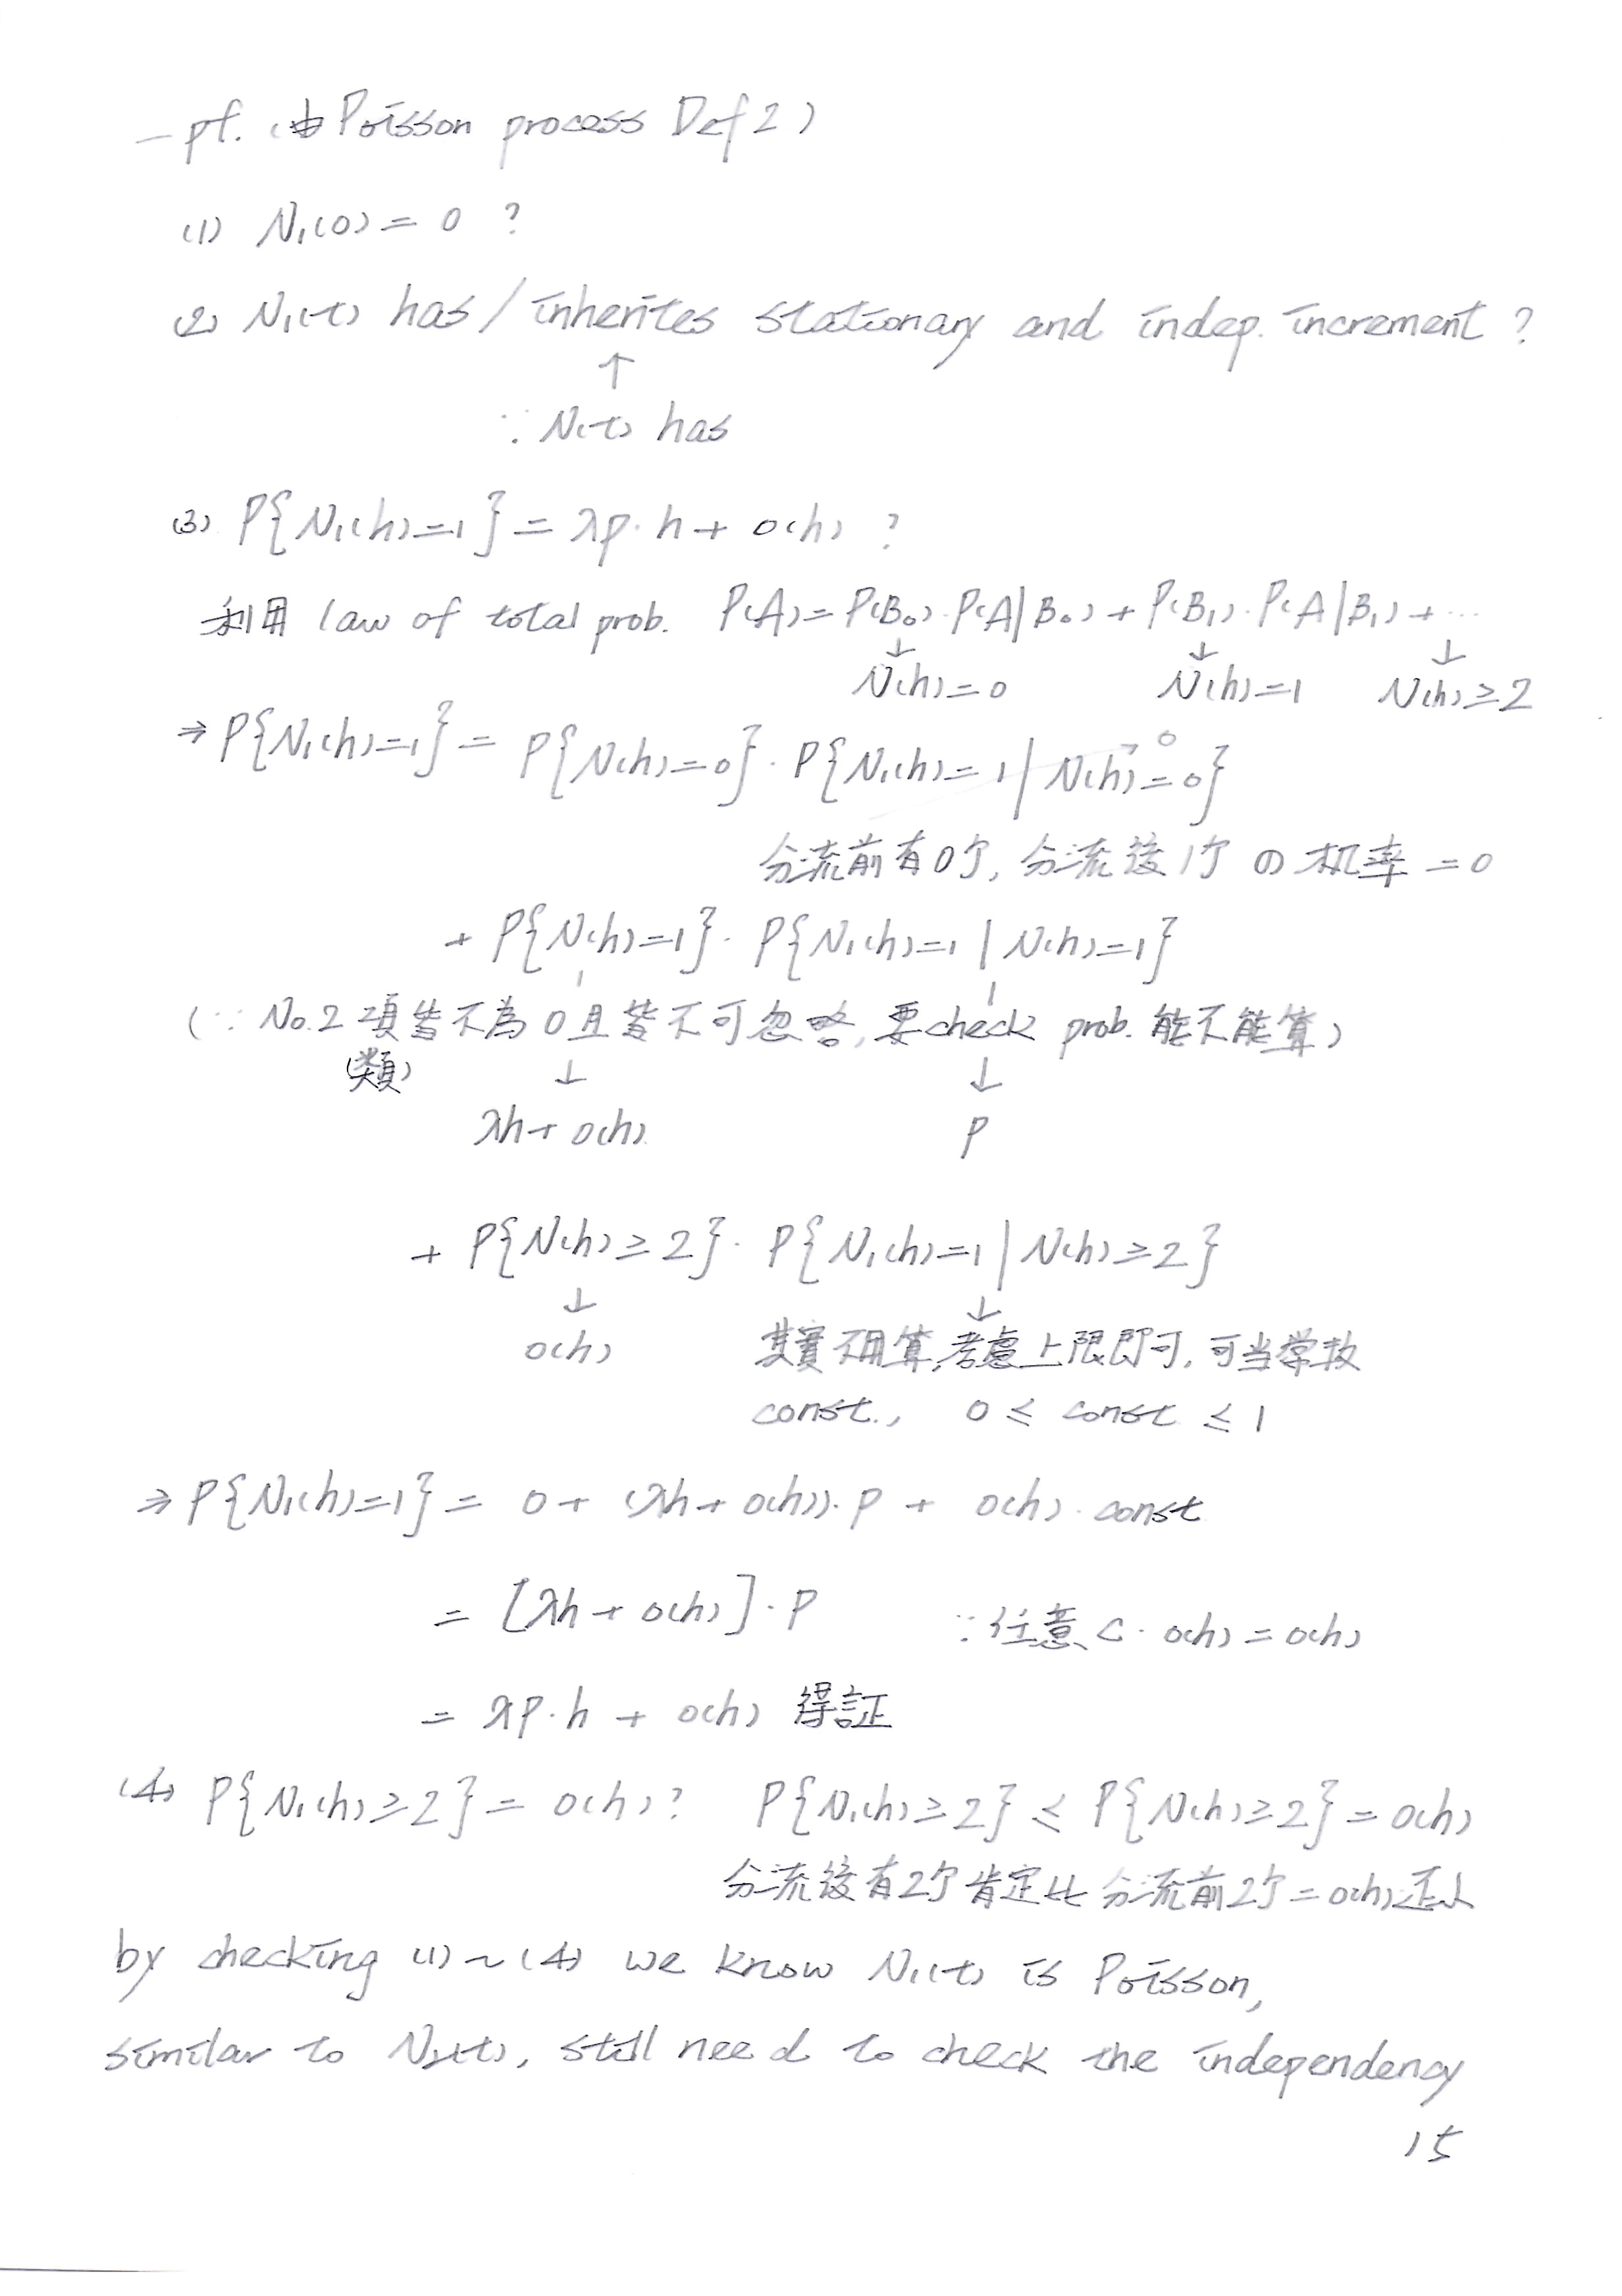 – pf. (由 Poisson process Def 2)
(1) N₁(0) = 0 ?
(2) N₁(t) has / inherites stationary and indep. increment ?
↑
∵ N(t) has
(3) P{N₁(h)=1} = λp·h + o(h) ?
利用 law of total prob. P(A) = P(B₀)·P(A|B₀) + P(B₁)·P(A|B₁) + ...
↓ ↓ ↓
N(h)=0 N(h)=1 N(h)≥2
⇒ P{N₁(h)=1} = P{N(h)=0}·P{N₁(h)=1 | N(h)=0} → 0
分流前有0个, 分流後1个 の 机率 = 0
+ P{N(h)=1}· P{N₁(h)=1 | N(h)=1}
(∵ No.2 項皆不為 0 且皆不可忽略, 要check prob. 能不能算)
(類) ↓ ↓
λh + o(h) p
+ P{N(h)≥2}· P{N₁(h)=1 | N(h)≥2}
↓ ↓
o(h) 其實不用算,考慮上限即可, 可当常数
const., 0 ≤ const ≤ 1
⇒ P{N₁(h)=1} = 0 + (λh + o(h))·p + o(h)·const
= [λh + o(h)]·p ∵任意 c·o(h) = o(h)
= λp·h + o(h) 得証
(4) P{N₁(h)≥2} = o(h) ? P{N₁(h)≥2} ≤ P{N(h)≥2} = o(h)
分流後有2个 肯定比 分流前2个 = o(h)还小
by checking (1) ~ (4) we know N₁(t) is Poisson,
similar to N₂(t), still need to check the independency
15